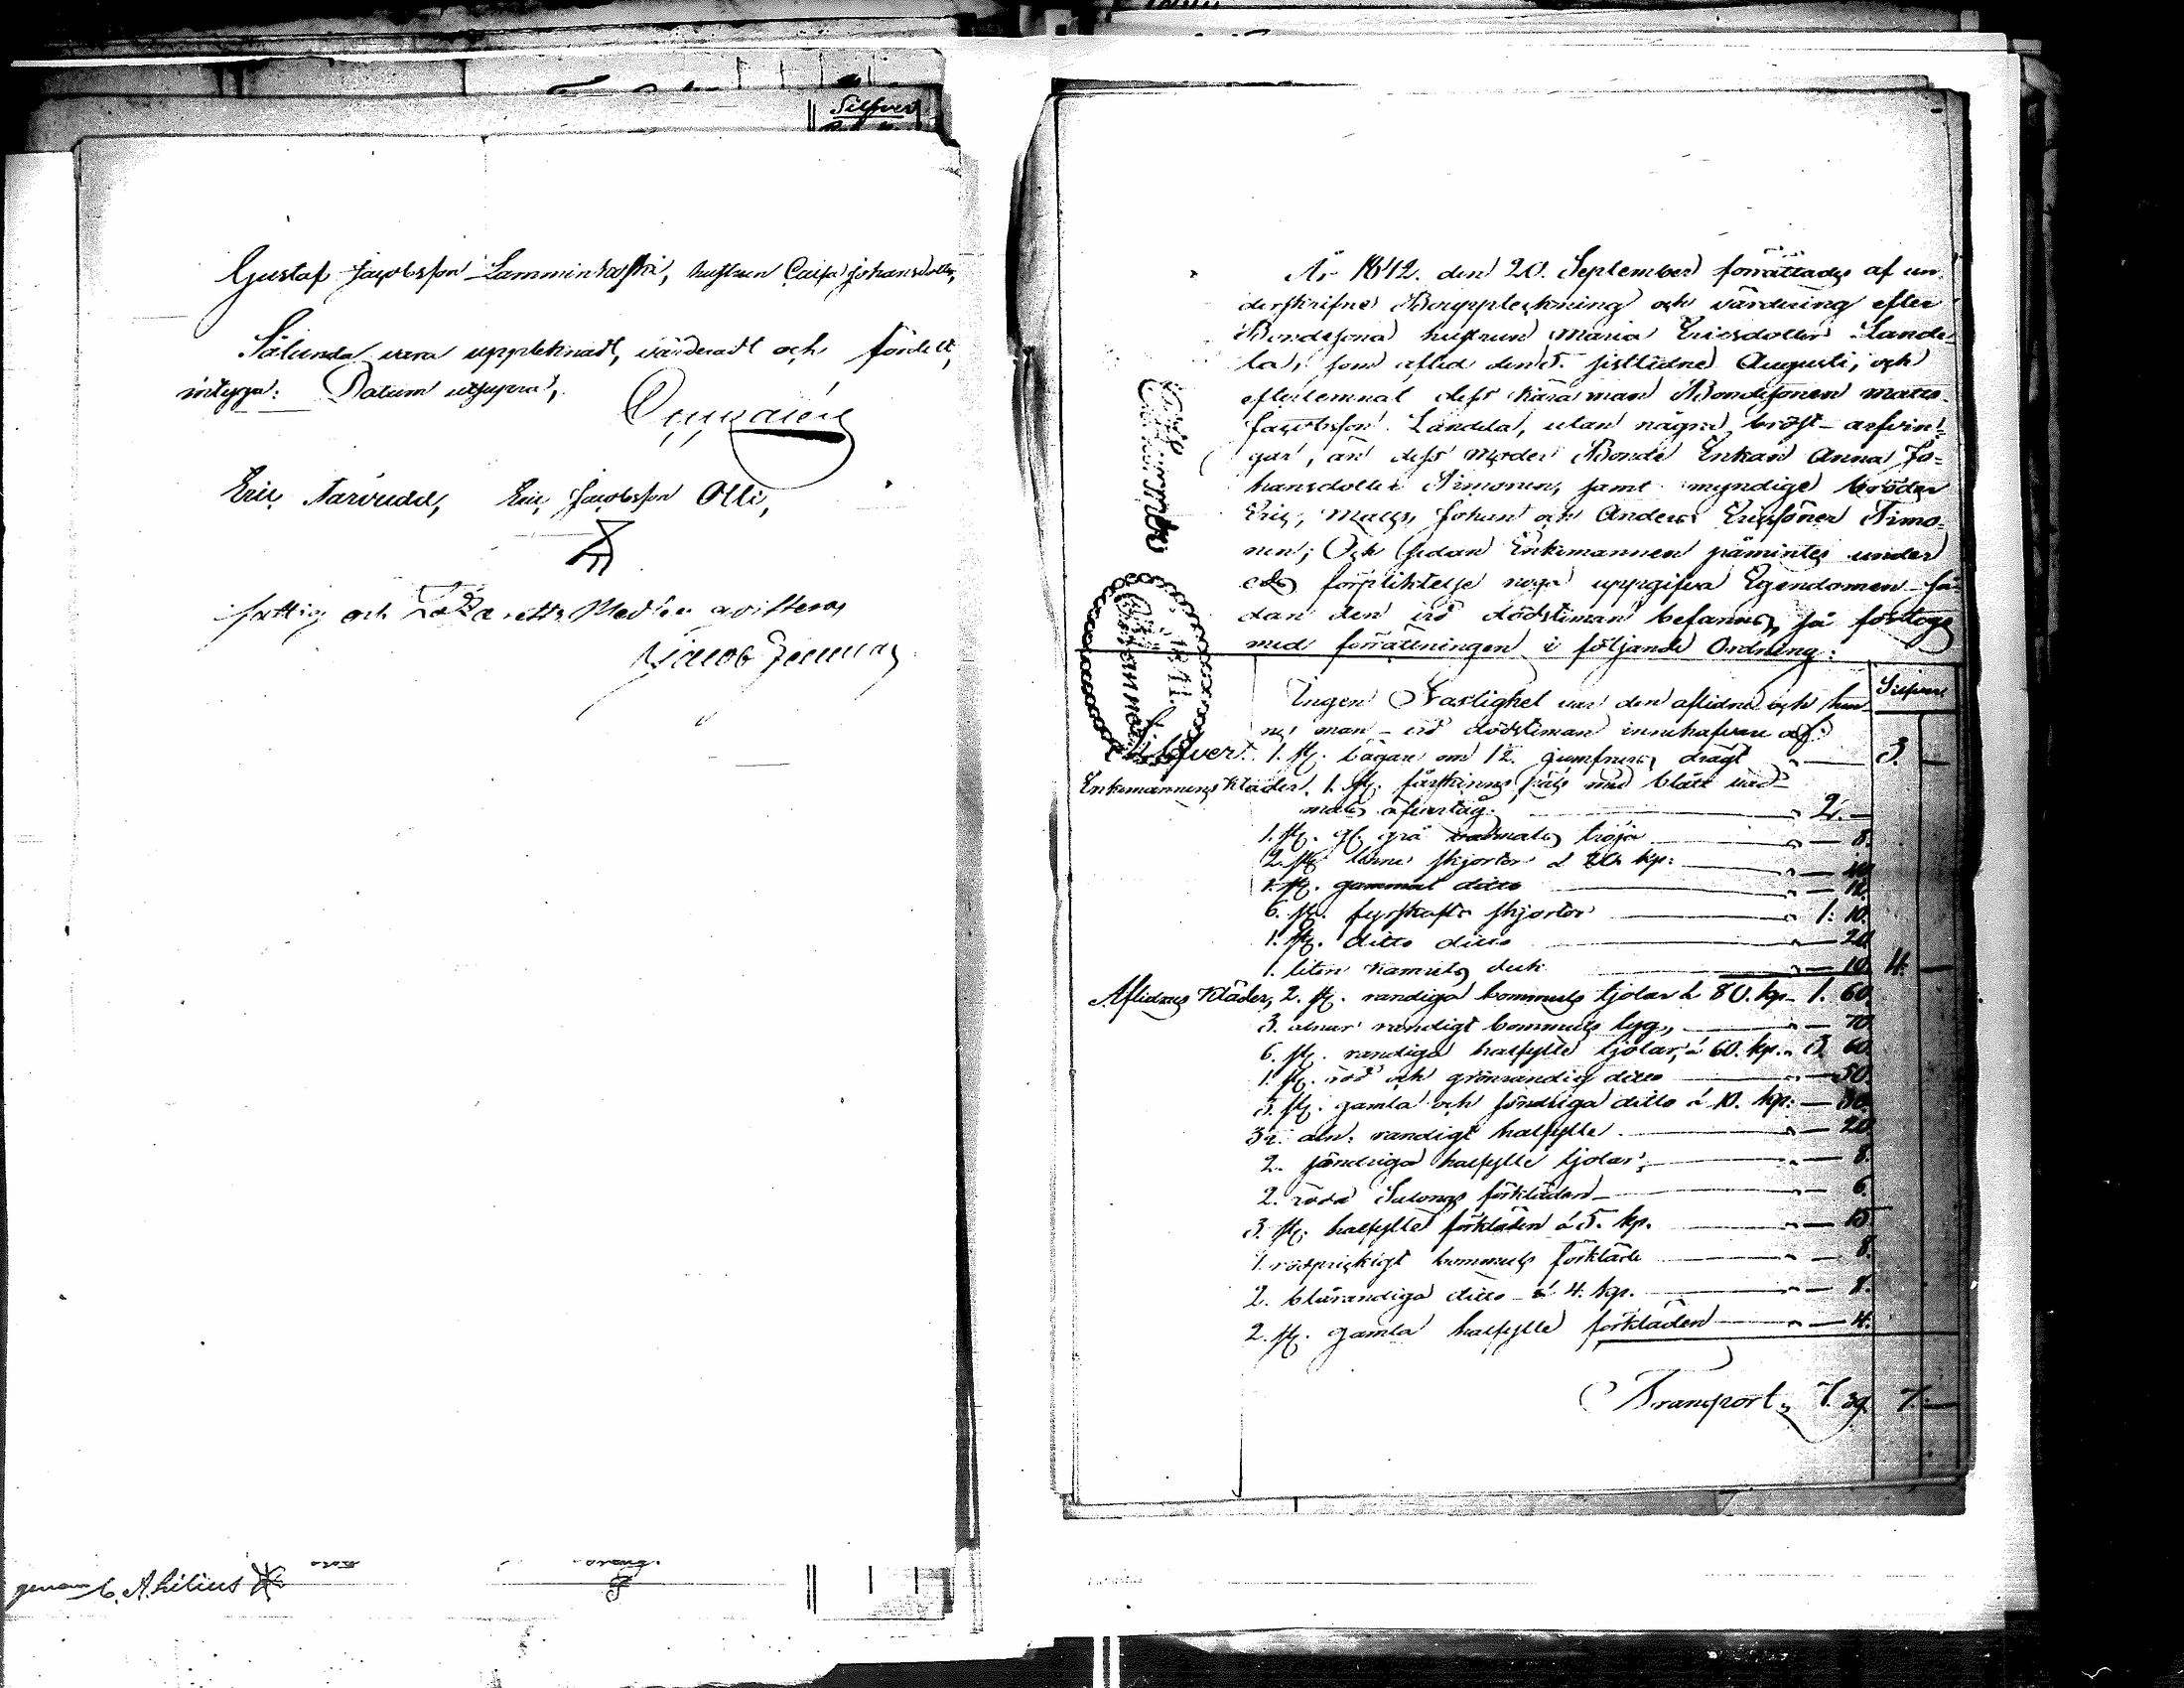 Silfver
Gustaf Jacobsson Lamminkoski, hustrun Caisa Johansdotter,
Sålunda vara upptecknadt, värderadt och fördelt,
intyga: Datum utsupra,
Eric Jacobsson Olli,
fattig och Lazaretts Medlen qvitteras
Jacob
År 1842. den 20. September förrättades af un-
derskrifne Bouppteckning och värdering efter
Bondesona hustrun Maria Ericsdotter Lande-
la, som afled den 5. sistlidne Augusti, och
efterlemnat dess kära man Bondesonen Matts
Jacobsson Landela, utan några bröst-arfvin-
gar, än dess Moder Bonde Enkan Anna Jo-
hansdotter Timonen, samt myndige bröder
Eric, Matts, Johan och Anders Ericssöner Timo-
nen; Och sedan Enkemannen påmintes under
eds förpliktelse noga uppgifva Egendomen så-
dan den vid dödstiman befanns, så företogs
med förrättningen i följande Ordning:
Silfver
Ingen Fastighet var den aflidna och hen-
nes man vid dödstiman innehafvare af:
Silfver. 1. st. bägare om 12. jumfrurs drägt " — 3. —
Enkemannens Kläder, 1. st. fårskinns päls med blått vad-
mals öfvertåg " 2. —
1. st. gl. grå vadmals tröja " — 8.
2. st. linne skjortor á 20. kp: " — 40.
1. st. gammal ditto " — 12.
6. st. fyrskafts skjortor " 1: 10.
1. st. ditto ditto " — 20.
1. liten kamults duk " — 10. 4. —
Aflidnes Kläder, 2. st. randiga bommuls kjolar á 80. kp. 1. 60.
3. alnar randigt bommuls tyg, " — 70.
6. st. randiga halfylle kjolar, á 60. kp. " 3. 60.
1. st. röd och grönrandig ditto " — 50.
3. st. gamla och söndriga ditto á 10. kp: — 30.
aln. randigt halfylle " — 20.
2. söndriga halfylle kjolar, " — 8.
2. röda förkläden " — 6.
3. st. halfylle förkläden á 5. kp. " — 15
1. rödprickigt bommuls förkläde " — 8.
2. blårandiga ditto á 4. kp. " — 8.
2. st. gamla halfylle förkläden " — 4.
Transport, 7. 39. 7. —
genom C. A. Lilius